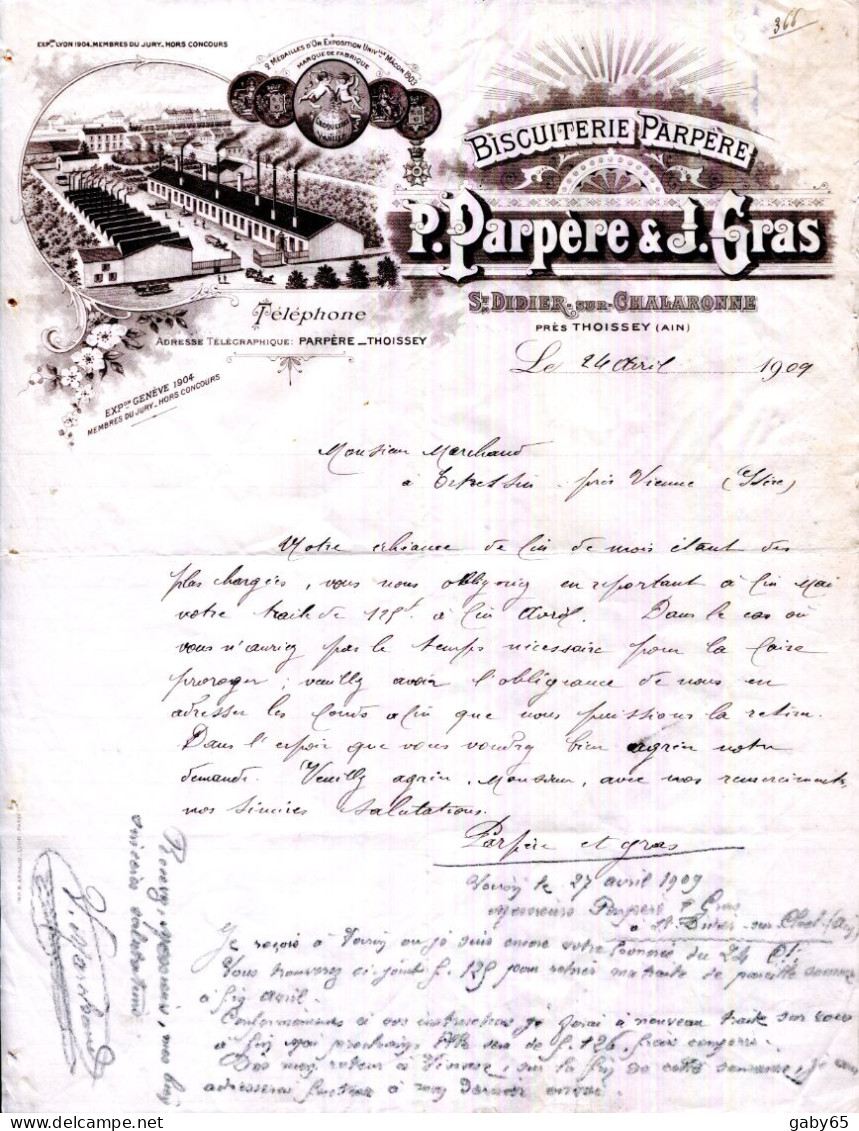 366
EXPON LYON 1904. MEMBRES DU JURY_ HORS CONCOURS
2 MÉDAILLES D'OR EXPOSITION UNIVLLE MACON 1903
MARQUE DE FABRIQUE
BISCUITERIE PARPÈRE
P. Parpère & J. Gras
ST DIDIER-SUR-CHALARONNE
PRÈS THOISSEY (AIN)
Téléphone
ADRESSE TÉLÉGRAPHIQUE: PARPÈRE_THOISSEY
EXPON GENÈVE 1904
MEMBRES DU JURY_HORS CONCOURS
Le 24 Avril 1909
Monsieur Marchand
à près Vienne (Isère)
Notre échéance de fin de mois étant des
plus chargées, vous nous obligeriez en reportant à fin Mai
votre traite de 125f à fin Avril. Dans le cas où
vous n'auriez pas le temps nécessaire pour la faire
proroger; veuillez avoir l'obligeance de nous en
adresser les fonds afin que nous puissions la retirer.
Dans l'espoir que vous voudrez bien agréer notre
demande. Veuillez agréer, Monsieur, avec nos remerciements
nos sincères salutations.
Parpère et Gras
le 27 avril 1909
Messieurs Parpère & Gras
à St Didier-sur-Chal-(Ain)
Je reçois à où je suis encore votre du 24 Ct.
Vous trouverez ci-joint f. 125 pour retirer ma traite de pareille somme
à fin Avril.
Conformément à vos instructions je ferai à nouveau traite sur vous
à fin Mai prochain. Elle sera de f. 126. frais compris.
Dès mon retour à Vienne, sur la fin de cette semaine, je vous
adresserai facture à mon dernier
Recevez, Messieurs, mes bien
sincères salutations.
V. Marchand
gaby65